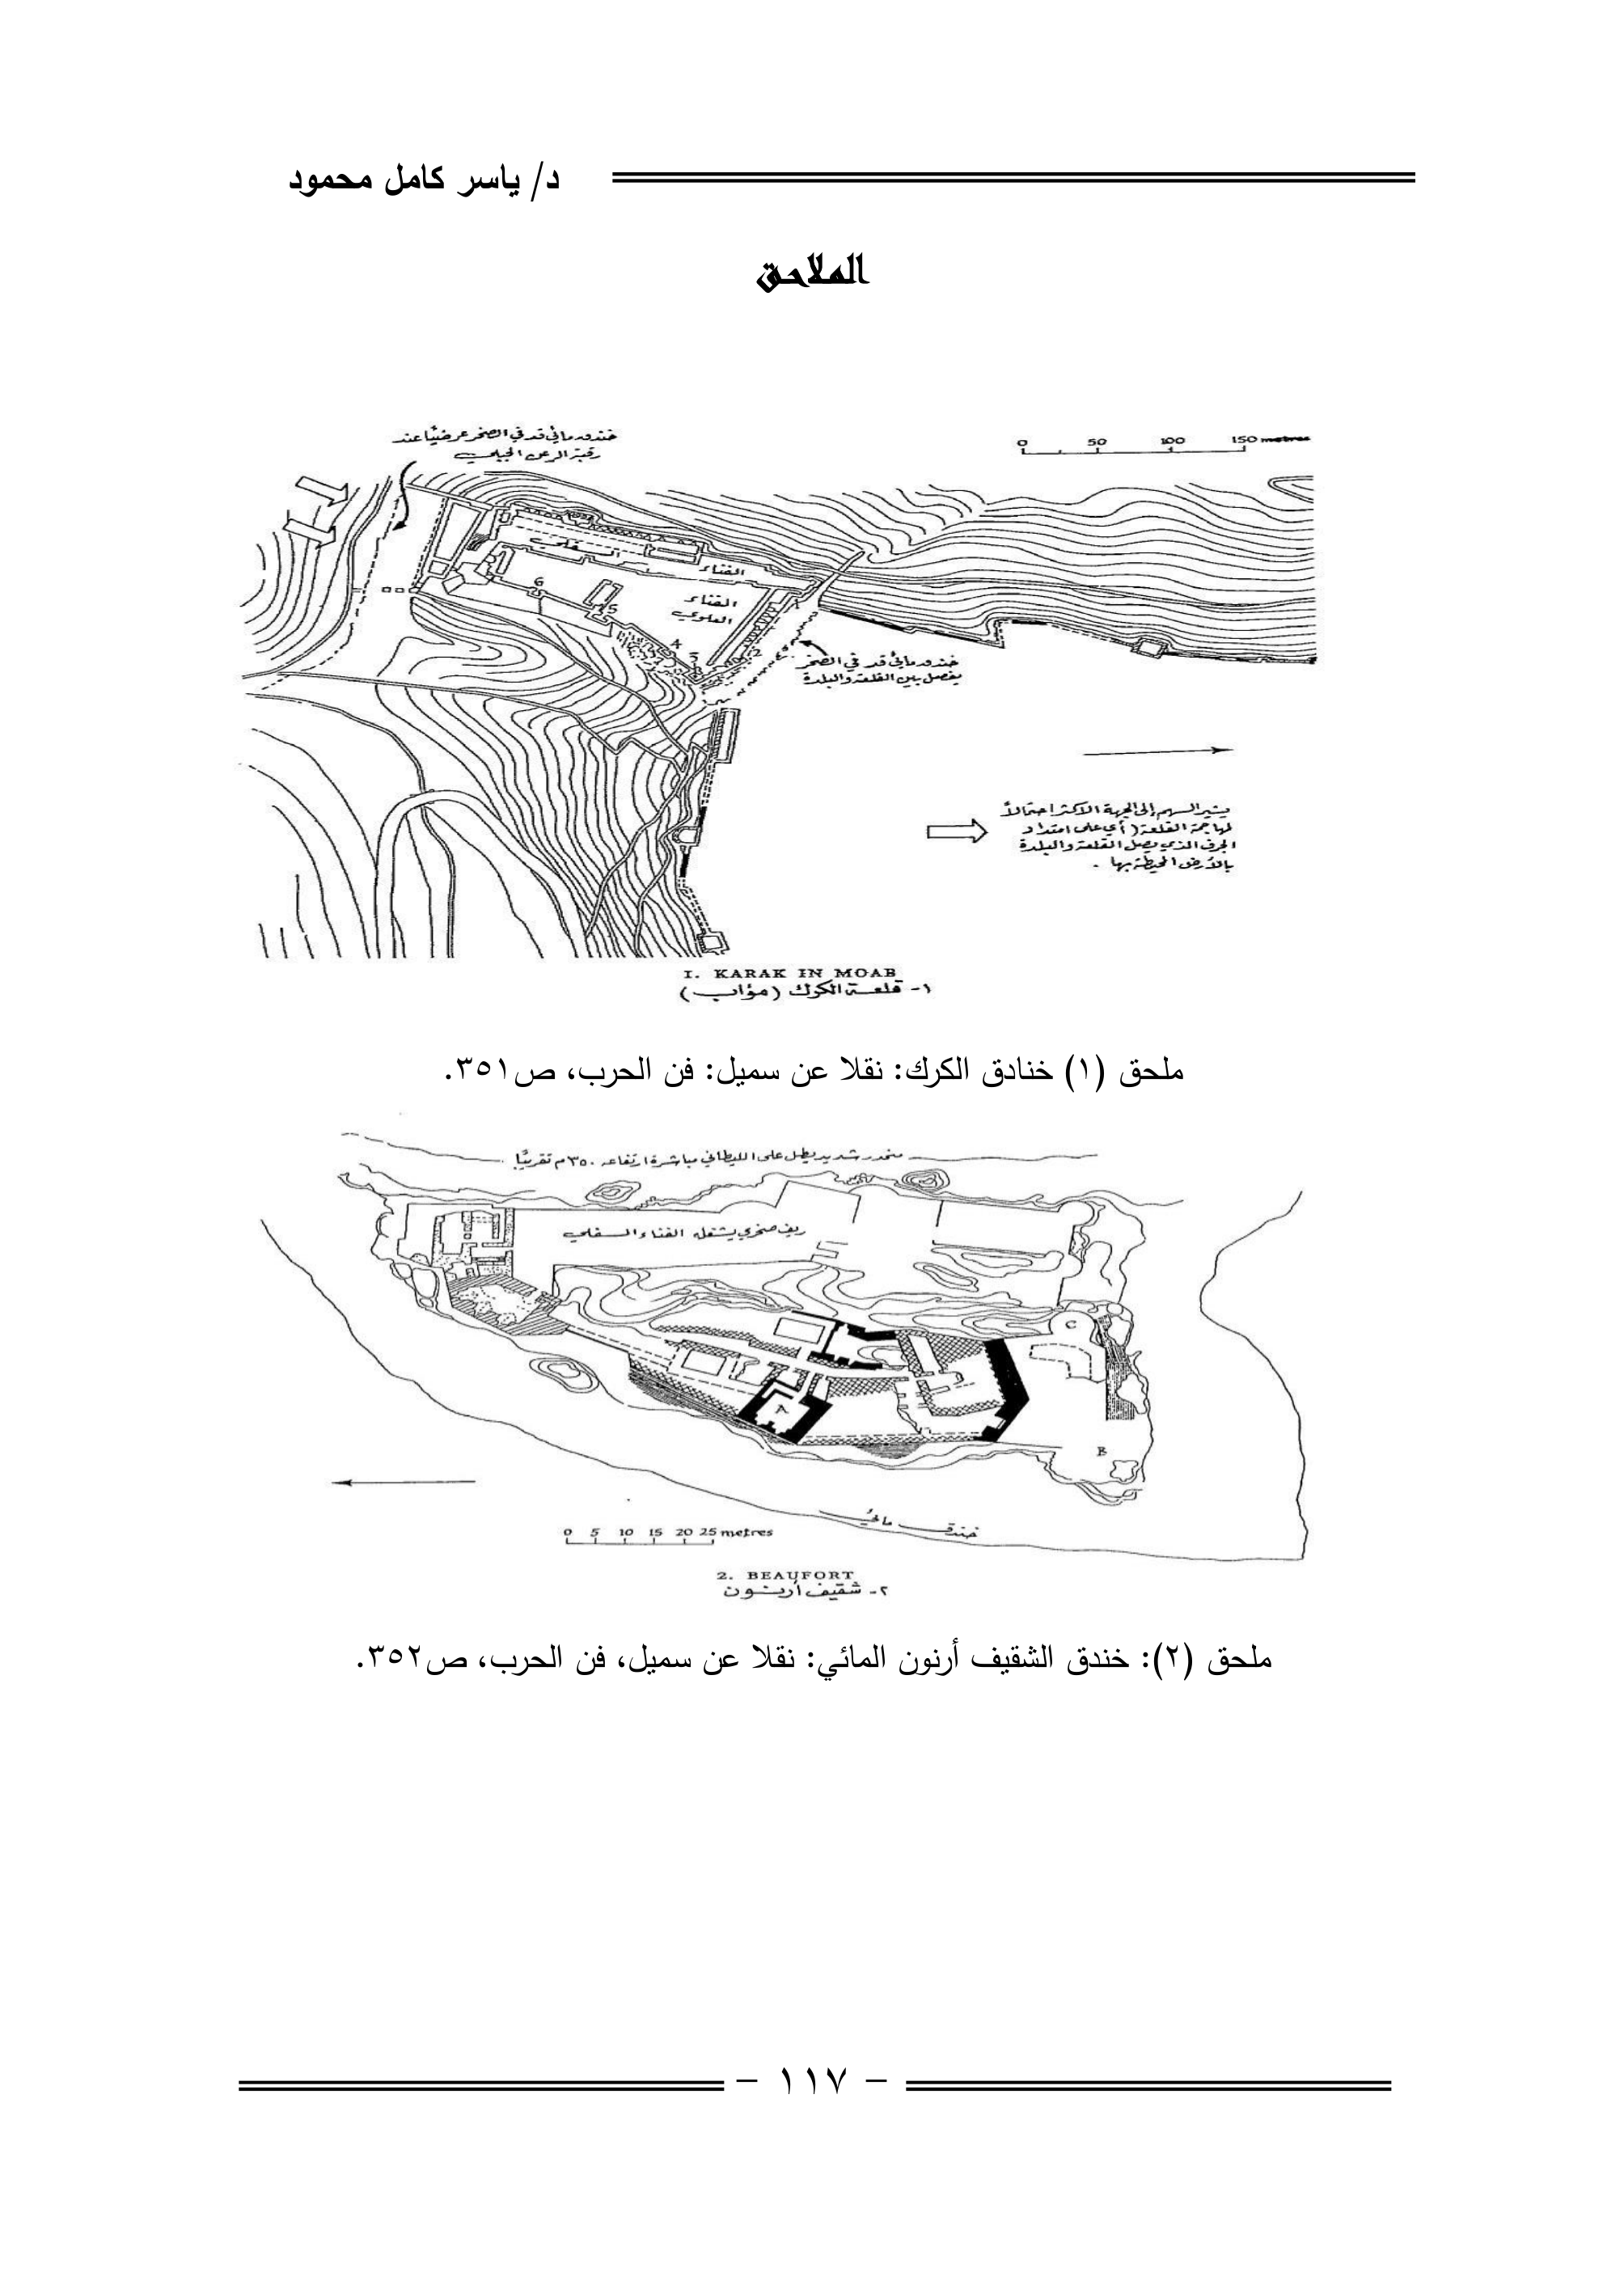 د/ ياسر كامل محمود
الملاحق
خندق مائي قد في الصخر عرضيًا عند
رقبة الرعن الجبلي
0 50 100 150 metres
الفناء السفلي
الفناء
العلوي
6
5
4
3
2
1
خندق مائي قد في الصخر
يفصل بين القلعة والبلدة
يشير السهم إلى الجهة الاكثر احتمالاً
لمهاجمة القلعة (أي على امتداد
الجرف الذي يصل القلعة والبلدة
بالأرض المحيطة بها .
1. KARAK IN MOAB
١- قلعة الكرك (مؤاب)
ملحق (١) خنادق الكرك: نقلا عن سميل: فن الحرب، ص٣٥١.
منحدر شديد يطل على الليطاني مباشرة ارتفاعه ٣٥٠م تقريبًا
ريف صخري يشغله الفناء السفلي
C
A
B
خندق مائي
0 5 10 15 20 25 metres
2. BEAUFORT
٢- شقيف أرنون
ملحق (٢): خندق الشقيف أرنون المائي: نقلا عن سميل، فن الحرب، ص٣٥٢.
- ١١٧ -